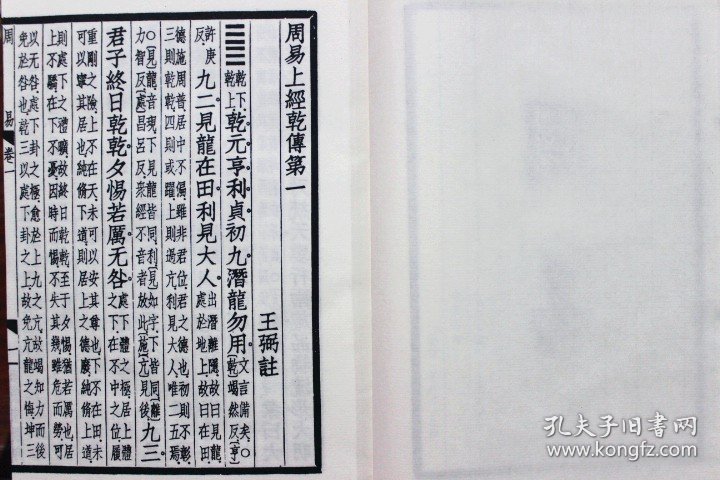 周易上經乾傳第一
王弼註
䷀乾下乾上乾元亨利貞初九潛龍勿用文言備矣○乾竭然反亨
許庚反九二見龍在田利見大人出潛離隱故曰見龍處於地上故曰在田
德施周普居中不偏雖非君位君之德也初則不彰
三則乾乾四則或躍上則過亢利見大人唯二五焉
○見龍音現下見龍皆同利見如字下皆同離
力智反處昌呂反衆經不音者放此施亢見後九三
君子終日乾乾夕惕若厲无咎處下體之極居上體之下在不中之位履
重剛之險上不在天未可以安其尊也下不在田未
可以寧其居也純脩下道則居上之德廢純脩上道
則處下之禮曠故終日乾乾至于夕惕猶若厲也居
上不驕在下不憂因時而惕不失其幾雖危而勞可
以无咎處下卦之極愈於上九之亢故竭知力而後
免於咎也乾三以處下卦之上故免亢龍之悔坤三
周易卷一
一
孔夫子旧书网
www.kongfz.com